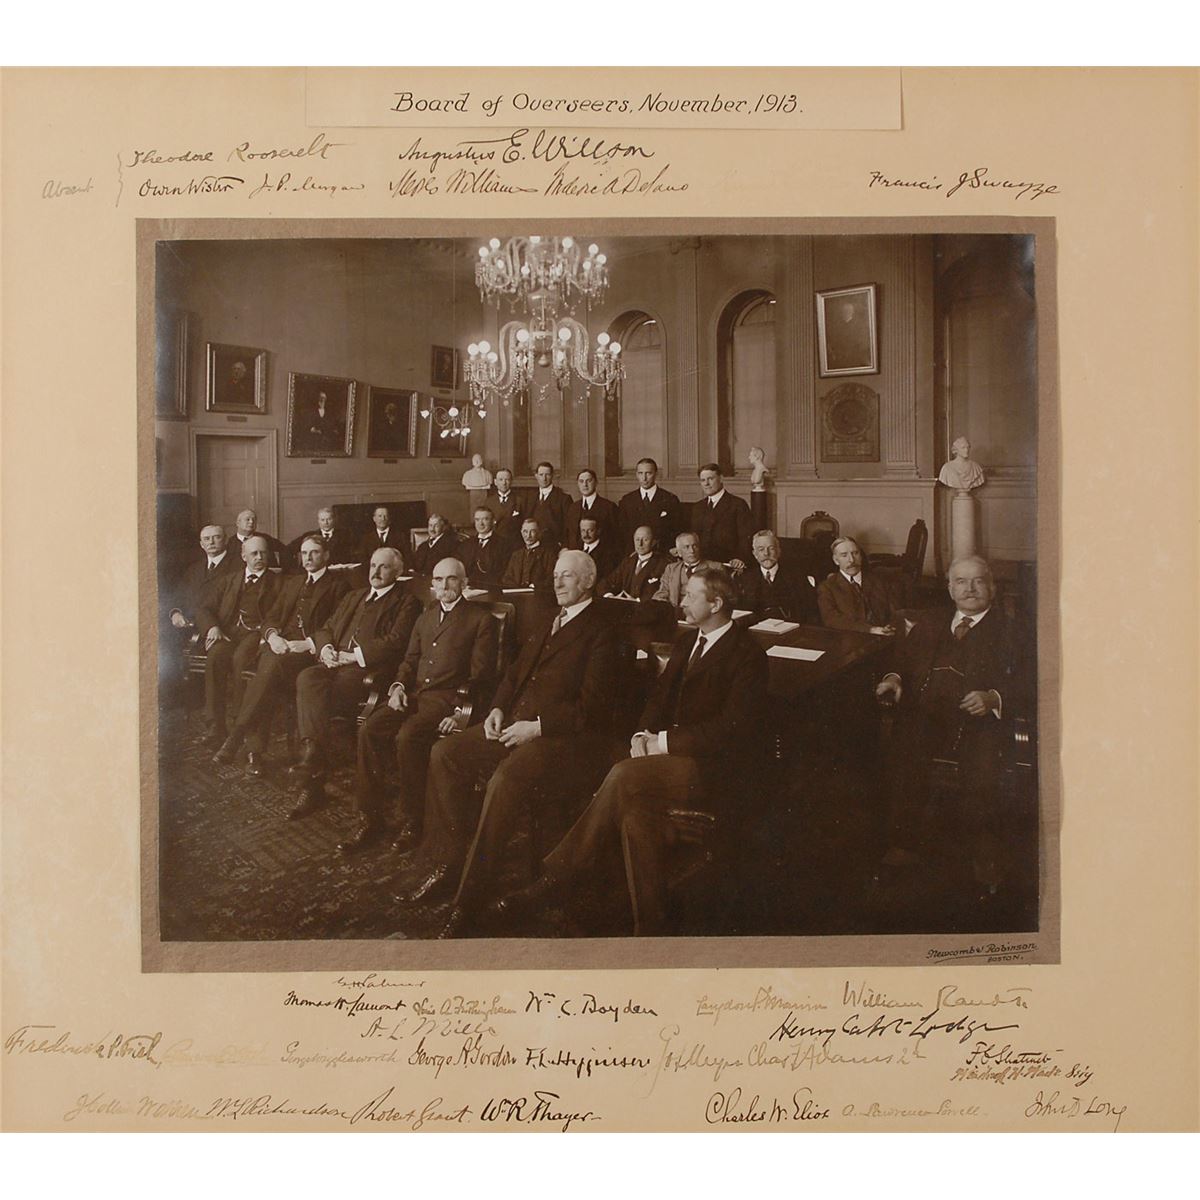 Board of Overseers, November, 1913.
Theodore Roosevelt Augustus E. Willson
Absent Owen Wister J. P. Morgan Moses Williams Frederic A Delano Francis J Swayze
Newcomb & Robinson
BOSTON.
G H Palmer
Thomas W. Lamont Louis A Frothingham Wm C. Boyden Langdon P. Marvin William
A. L. Mills Henry Cabot Lodge
Frederick P. Fish George Wigglesworth George A. Gordon F. L. Higginson Geo v L Meyer Chas F Adams 2d F C Shattuck
J Collins Warren W. L. Richardson Robert Grant Wm R. Thayer Charles W. Eliot A. Lawrence Lowell John D Long